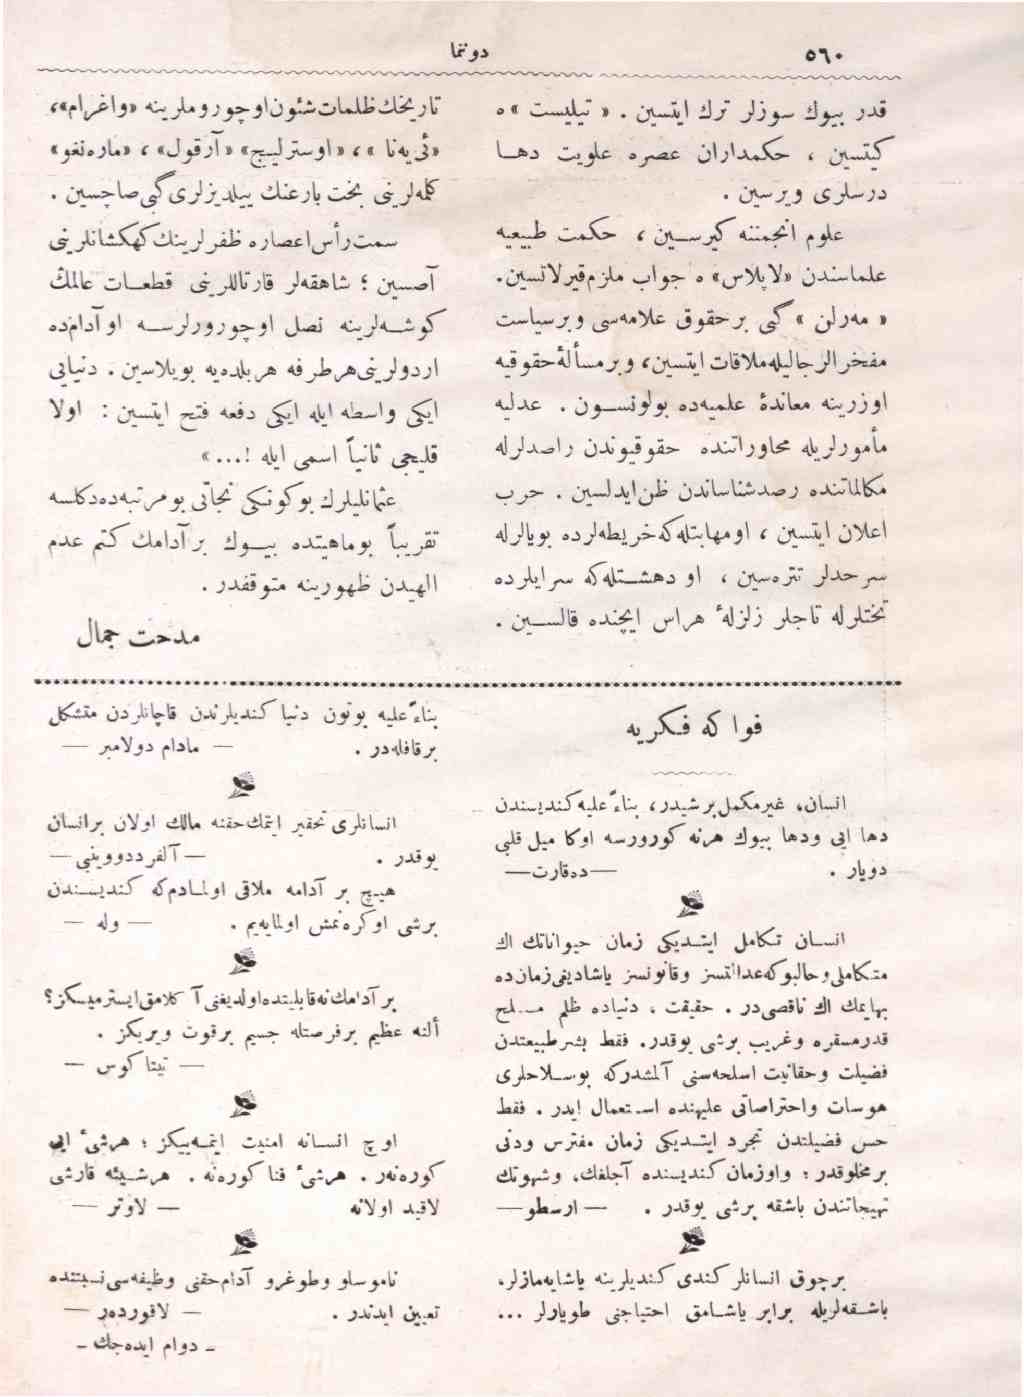 ٥٦٠
دوننما
قدر بيوك سوزلر ترك ايتسين . « تيليست » ه
كيتسين ، حكمداران عصره علويت دها
درسلرى ويرسين .
علوم انجمننه كيرسين ، حكمت طبيعيه
علماسندن «لاپلاس» ه جواب ملزم قيرلاتسين.
« مه‌رلن » كبى برحقوق علامه‌سى وبرسياست
مفخر الرجاليله ملاقات ايتسين، وبر مسألهٔ حقوقيه
اوزرينه معاندهٔ علميه‌ده بولونسون . عدليه
مأمورلريله محاوراتنده حقوقيوندن راصدلرله
مكالماتنده رصدشناساندن ظن ايدلسين . حرب
اعلان ايتسين ، اومهابتله كه خريطه‌لرده بويالرله
سرحدلر تتره‌سين ، او دهشتله كه سرايلرده
تختلرله تاجلر زلزلهٔ هراس ايچنده قالسين .
تاريخك ظلمات شئون اوچوروملرينه «واغرام»،
«ئى‌يه‌نا » ، «اوسترليج» «آرقول» ، «ماره‌نغو»
كله‌لرينى بخت يارعنك ييلديزلرى كبى صاچسين .
سمت رأس اعصاره ظفرلرينك كهكشانلرينى
آصسين ؛ شاهقه‌لر قارتاللرينى قطعات عالمك
كوشه‌لرينه نصل اوچورورلرسه او آدام‌ده
اردولرينى هر طرفه هر بلده‌يه بويلاسين . دنيايى
ايكى واسطه ايله ايكى دفعه فتح ايتسين : اولا
قليجى ثانياً اسمى ايله !... »
عثمانليلرك بوكونكى نجاتى بومرتبه‌ده دكلسه
تقريباً بوماهيتده بيوك بر آدامك كتم عدم
الهيدن ظهورينه متوقفدر .
مدحت جمال
فواكه فكريه
انسان، غيرمكمل برشيدر، بناءً عليه كنديسندن
دها ايى ودها بيوك هرنه كورورسه اوكا ميل قلبى
دويار . —ده‌قارت—
انسان تكامل ايتديكى زمان حيواناتك اك
متكاملى وحالبوكه عدالتسز وقانونسز ياشاديغى زمان‌ده
بهايمك اك ناقصى‌در . حقيقت ، دنياده ظلم مسلح
قدرمسفره وغريب برشى يوقدر. فقط بشر طبيعتدن
فضيلت وحقانيت اسلحه‌سنى آلمشدركه بوسلاحلرى
هوسات واحتراصاتى عليهنده استعمال ايدر . فقط
حس فضيلتدن تجرد ايتديكى زمان مفترس ودنى
برمخلوقدر ؛ واوزمان كنديسنده آجلغك، وشهوتك
تهيجاتندن باشقه برشى يوقدر . — ارسطو—
برچوق انسانلر كندى كنديلرينه ياشايه‌مازلر،
باشقه‌لريله برابر ياشامق احتياجنى طويارلر ...
بناءً عليه بوتون دنيا كنديلرندن قاچانلردن متشكل
برقافله‌در . — مادام دولامبر —
انسانلرى تحقير ايتمك حقنه مالك اولان برانسان
يوقدر . —آلفرد دووينيى—
هيچ بر آدامه ملاقى اولمادم كه كنديسندن
برشى اوكره‌نمش اولمايه‌يم . — وله —
بر آدامك نه قابليتده اولديغنى آ كلامق ايسترميسكز؟
ألنه عظيم برفرصتله جسيم برقوت ويريكز .
— تيتا كوس —
اوچ انسانه امنيت ايتمه‌ييكز ؛ هرشىءٔ ايى
كوره‌نه‌ر . هرشىءٔ فنا كوره‌نه . هرشيئه قارشى
لاقيد اولانه — لاوتر —
ناموسلو وطوغرو آدام حقنى وظيفه‌سى نسبتنده
تعيين ايدندر . — لاقوردەر —
ـ دوام ايده‌جك ـ